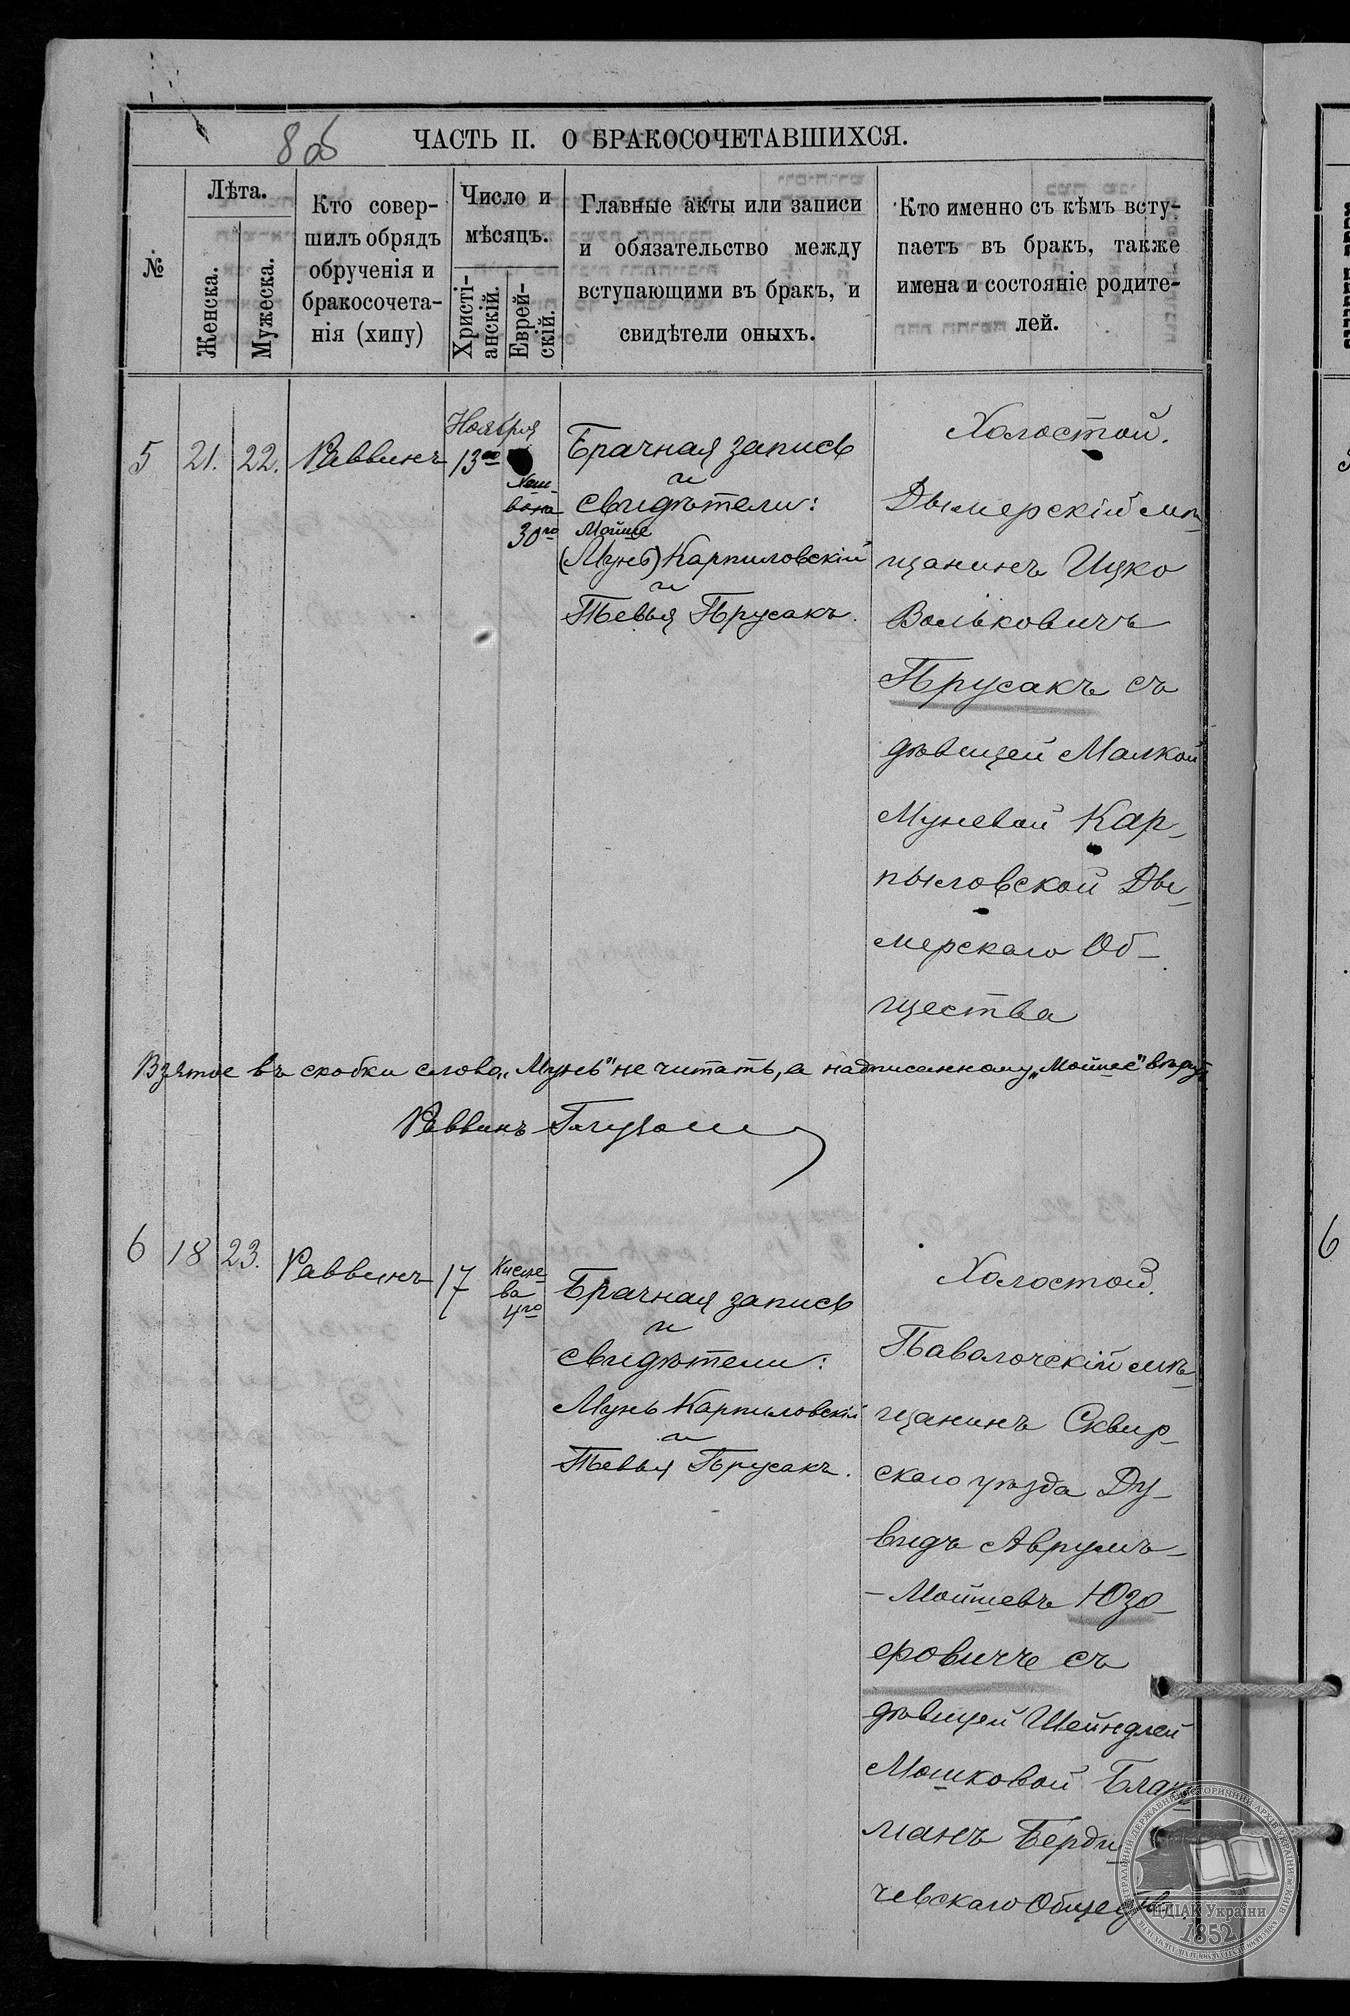 8об
ЧАСТЬ II. О БРАКОСОЧЕТАВШИХСЯ.
№
Лѣта.
Женска.
Мужеска.
Кто совер-
шилъ обрядъ
обрученія и
бракосочета-
нія (хипу)
Число и
мѣсяцъ.
Христі-
анскій.
Еврей-
скій.
Главные акты или записи
и обязательство между
вступающими въ бракъ, и
свидѣтели оныхъ.
Кто именно съ кѣмъ всту-
паетъ въ бракъ, также
имена и состояніе родите-
лей.
5
21.
22.
Раввинъ
Ноября
13го
Хеш-
вона
30го
Брачная запись
и
свидѣтели:
Мойше
(Мунь) Карпиловскій
и
Тевья Прусакъ.
Холостой.
Дымерскій мѣ-
щанинъ Ицко
Вольковичъ
Прусакъ съ
дѣвицей Малкой
Муневой Кар-
пыловской Ды-
мерскаго Об-
щества
Взятое въ скобки слово „Мунь" не читать, а надписанному „Мойше" вѣрить.
Раввинъ
6
18
23.
Раввинъ
17
Кисле-
ва
4го
Брачная запись
и
свидѣтели:
Мунь Карпиловскій
и
Тевья Прусакъ.
Холостой.
Паволочскій мѣ-
щанинъ Сквир-
скаго уѣзда Ду-
видъ Аврумъ-
-Мойшевъ Юзе-
фовичъ съ
дѣвицей Шейндлей
Мошковой Блак-
манъ Берди
чевскаго Общества
6
ЦДІАК України
1852